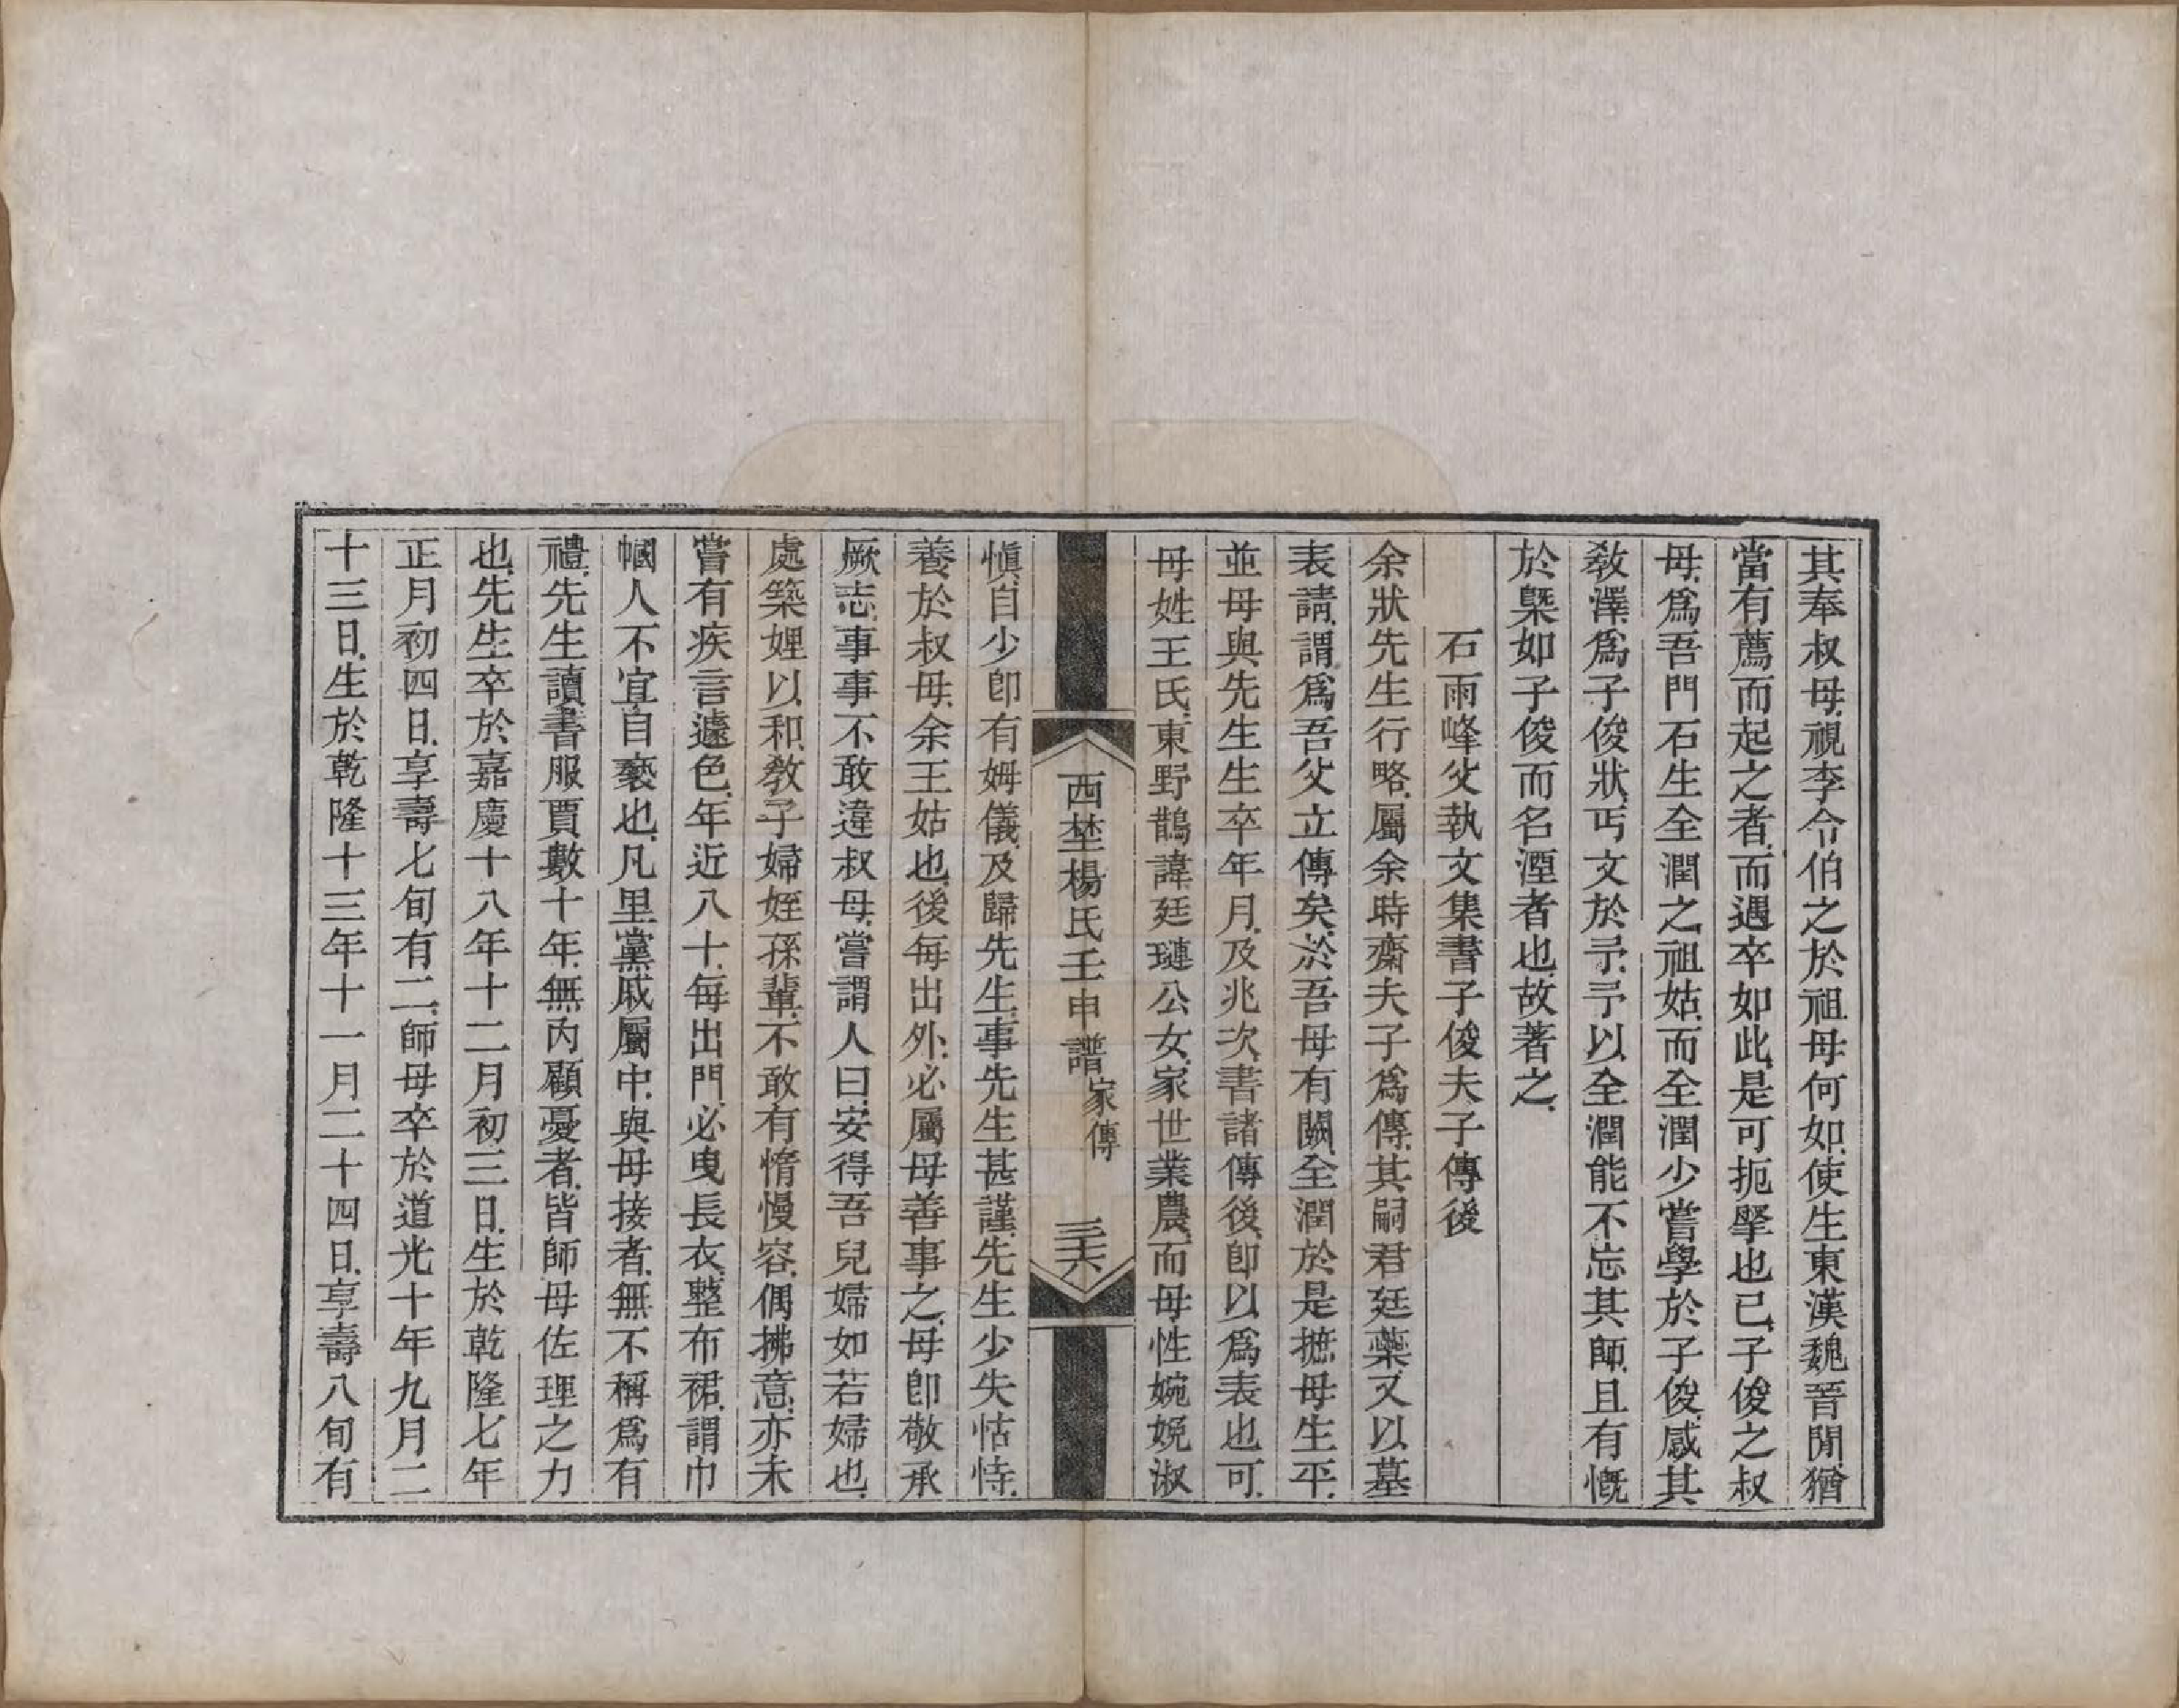 其奉叔母視李令伯之於祖母何如使生東漢魏晉閒猶
當有薦而起之者而遇卒如此是可扼掔也已子俊之叔
母爲吾門石生全潤之祖姑而全潤少嘗學於子俊感其
敎澤爲子俊狀丐文於予予以全潤能不忘其師且有慨
於槩如子俊而名湮者也故著之
石雨峰父執文集書子俊夫子傳後
余狀先生行略屬余時齋夫子爲傳其嗣君廷藥又以墓
表請謂爲吾父立傳矣於吾母有闕全潤於是摭母生平
並母與先生生卒年月及兆次書諸傳後卽以爲表也可
母姓王氏東野鵲諱廷璉公女家世業農而母性婉娩淑
西埜楊氏壬申譜 家傳 三六
愼自少卽有姆儀及歸先生事先生甚謹先生少失怙恃
養於叔母余王姑也後每出外必屬母善事之母卽敬承
厥志事事不敢違叔母嘗謂人曰安得吾兒婦如若婦也
處築娌以和敎子婦姪孫輩不敢有惰慢容偶拂意亦未
嘗有疾言遽色年近八十每出門必曳長衣整布裙謂巾
幗人不宜自褻也凡里黨戚屬中與母接者無不稱爲有
禮先生讀書服賈數十年無內顧憂者皆師母佐理之力
也先生卒於嘉慶十八年十二月初三日生於乾隆七年
正月初四日享壽七旬有二師母卒於道光十年九月二
十三日生於乾隆十三年十一月二十四日享壽八旬有